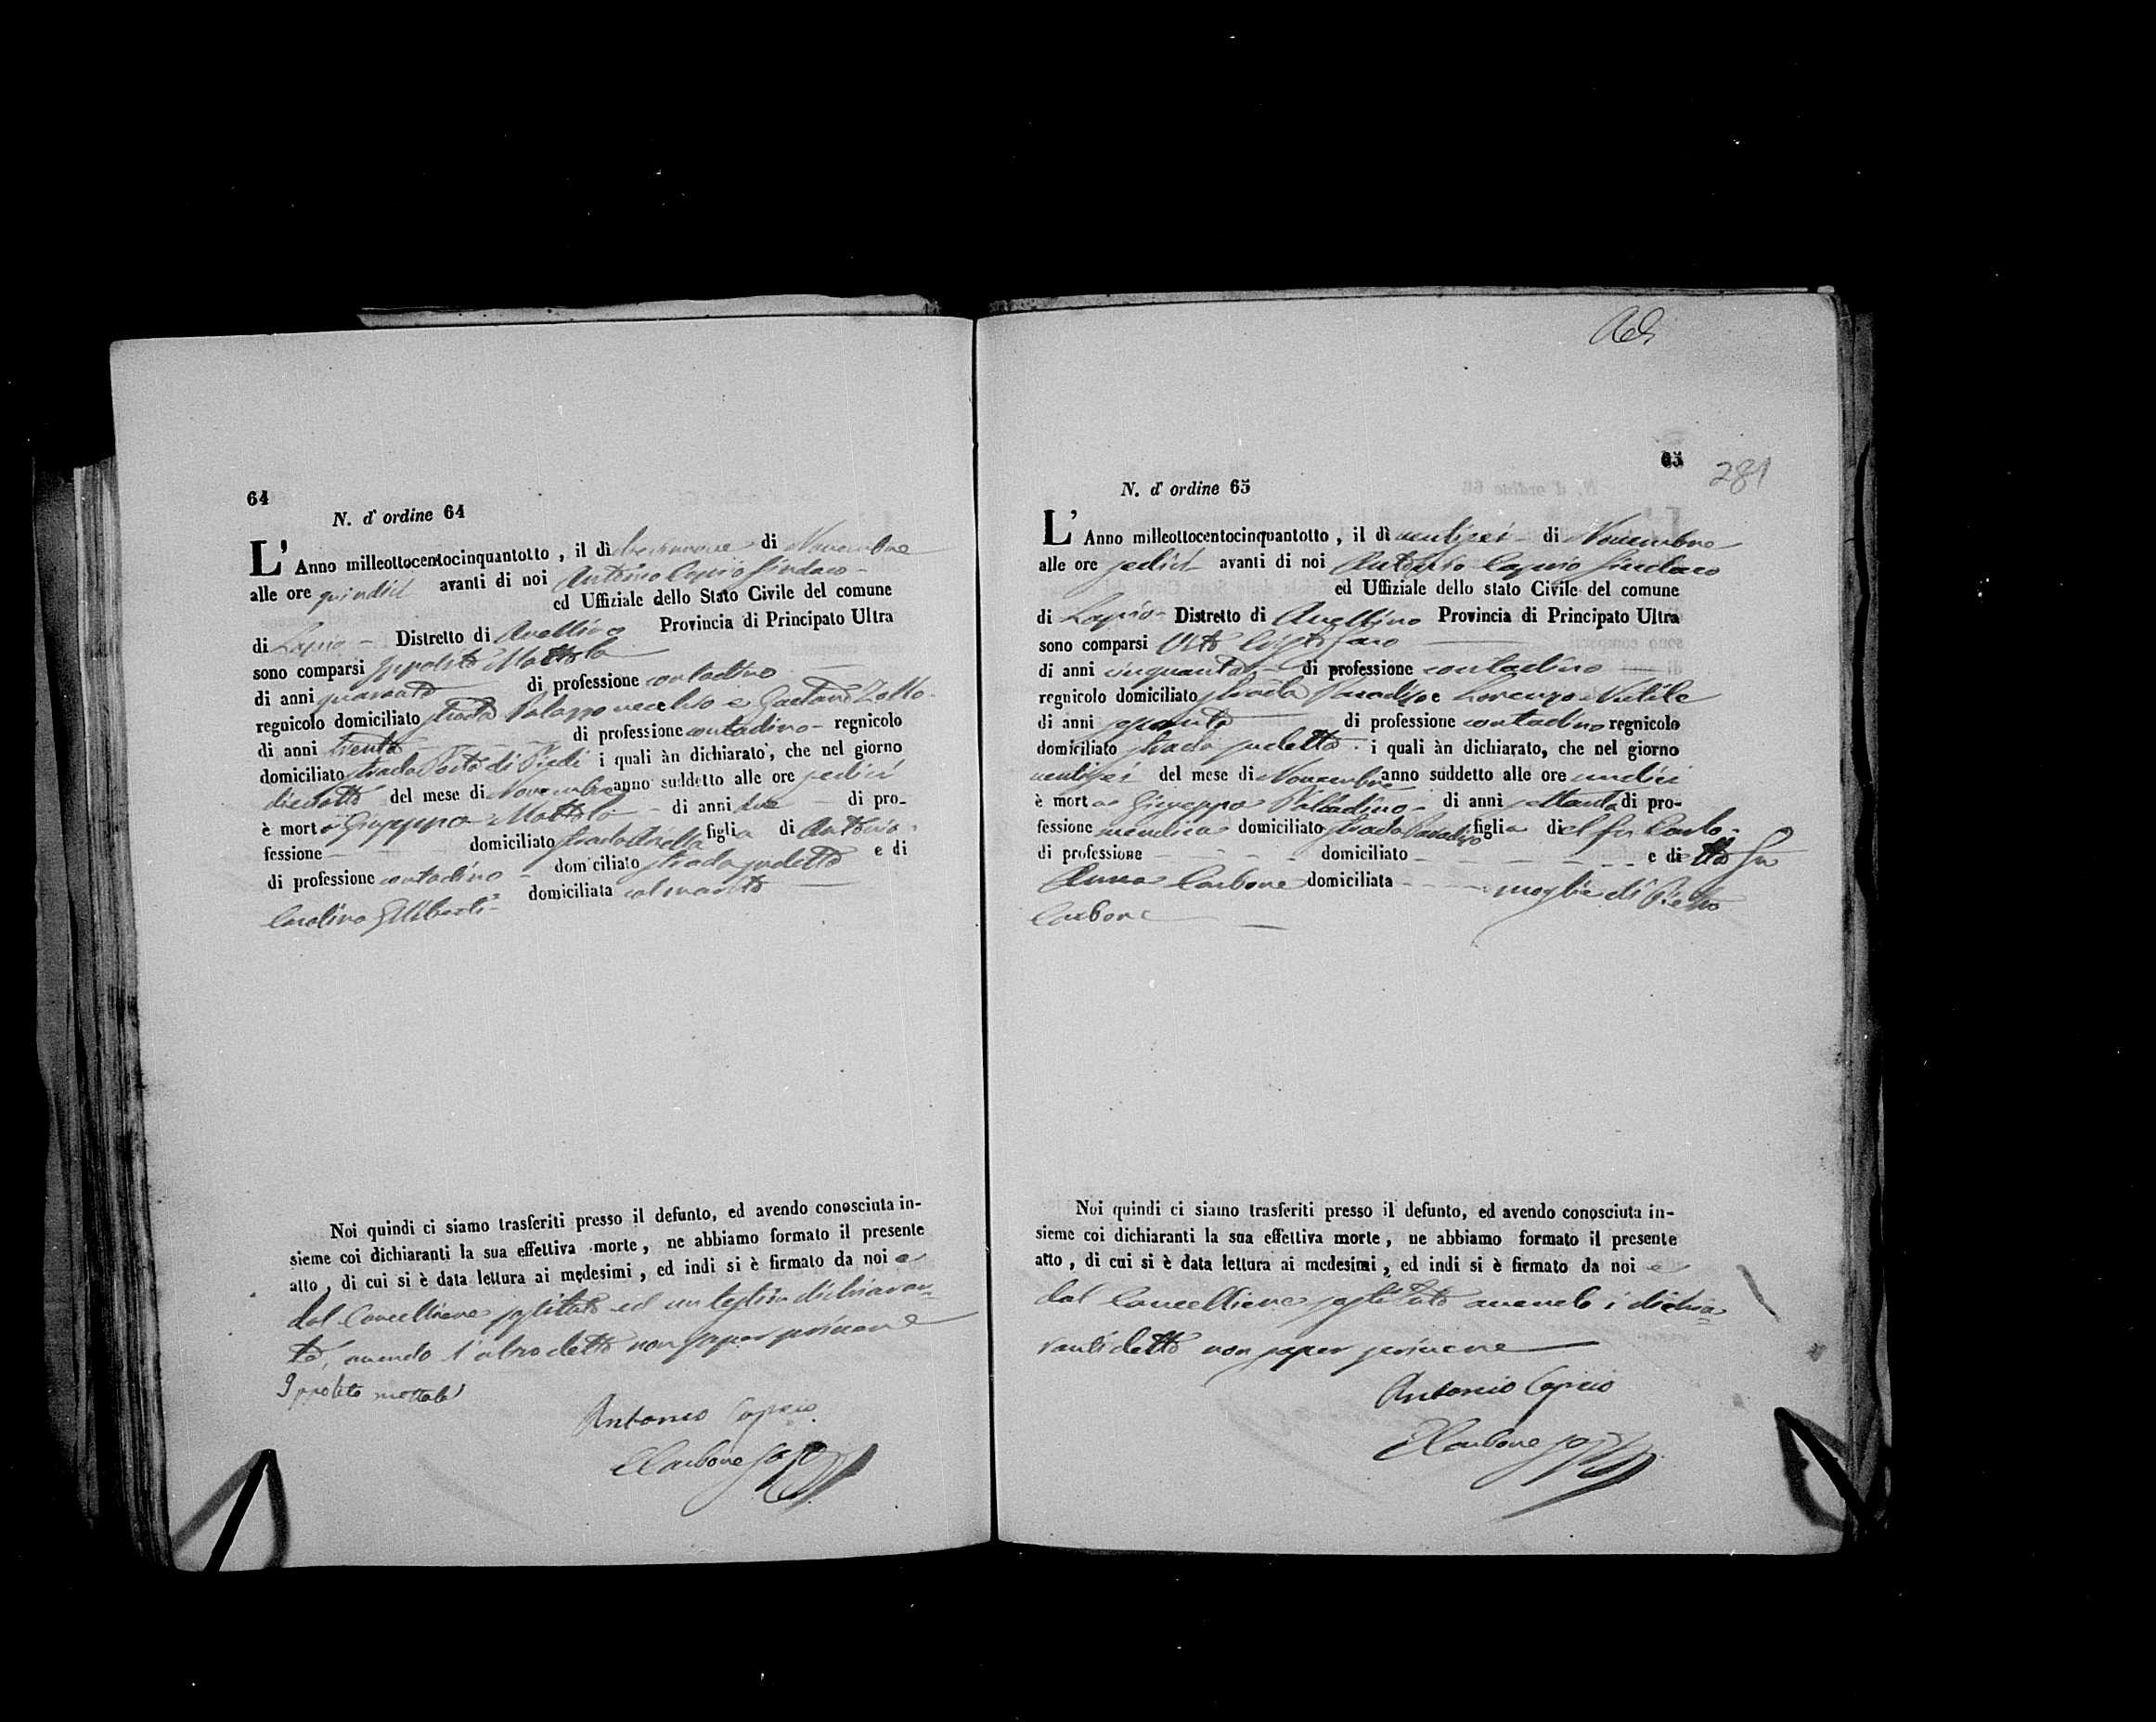 64
N. d' ordine 64
L' Anno milleottocentocinquantotto, il dì diecinnove di Novembre
alle ore quindici avanti di noi Antonio Caprio Sindaco
ed Uffiziale dello Stato Civile del comune
di Lapio Distretto di Avellino Provincia di Principato Ultra
sono comparsi Ippolito Mottola
di anni quaranta di professione contadino
regnicolo domiciliato strada Palazzo vecchio e Gaetano Zollo
di anni trenta di professione contadino regnicolo
domiciliato strada di Piedi i quali àn dichiarato, che nel giorno
dieciotto del mese di Novembre anno suddetto alle ore sedici
è morta Giuseppa Mottola di anni due di pro-
fessione domiciliato strada figlia di Antonio
di professione contadino domiciliato strada e di
Carolina Giliberti domiciliata col marito
Noi quindi ci siamo trasferiti presso il defunto, ed avendo conosciuta in-
sieme coi dichiaranti la sua effettiva morte, ne abbiamo formato il presente
atto, di cui si è data lettura ai medesimi, ed indi si è firmato da noi e
dal Cancelliere sostituto ed un dichiaran=
te, avendo l'altro detto non saper scrivere
Ippolito mottola
Antonio Caprio
Carbone
Ad.
65
281
N. d' ordine 65
L' Anno milleottocentocinquantotto, il dì ventisei di Novembre
alle ore sedici avanti di noi Antonio Caprio Sindaco
ed Uffiziale dello stato Civile del comune
di Lapio Distretto di Avellino Provincia di Principato Ultra
sono comparsi Vito Cristofaro
di anni cinquanta di professione contadino
regnicolo domiciliato strada Paradiso e Lorenzo Nutile
di anni sessanta di professione contadino regnicolo
domiciliato strada i quali àn dichiarato, che nel giorno
ventisei del mese di Novembre anno suddetto alle ore undici
è morta Giuseppa Palladino di anni settanta di pro-
fessione mendica domiciliato strada Paradiso figlia del fu Carlo
di professione domiciliato e di fu
Anna Carbone domiciliata moglie di Pietro
Carbone
Noi quindi ci siamo trasferiti presso il defunto, ed avendo conosciuta in-
sieme coi dichiaranti la sua effettiva morte, ne abbiamo formato il presente
atto, di cui si è data lettura ai medesimi, ed indi si è firmato da noi e
dal Cancelliere sostituto avendo i dichia=
ranti detto non saper scrivere
Antonio Caprio
Carbone